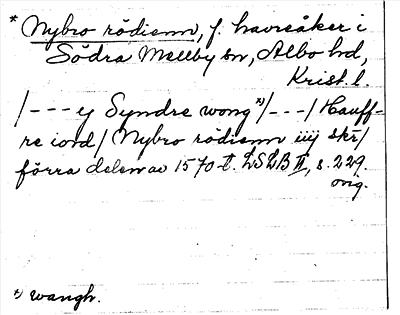 * Nybro rödienn, f. havreåker i
Södra Mellby sn, Albo hd,
Krist. l.
/--- ej Syndre wong *)/---/ Hauff-
re iord/ Nybro rödienn iiij skr/
förra delen av 1570-t. LSLB II, s. 229.
orig.
*) wangh.